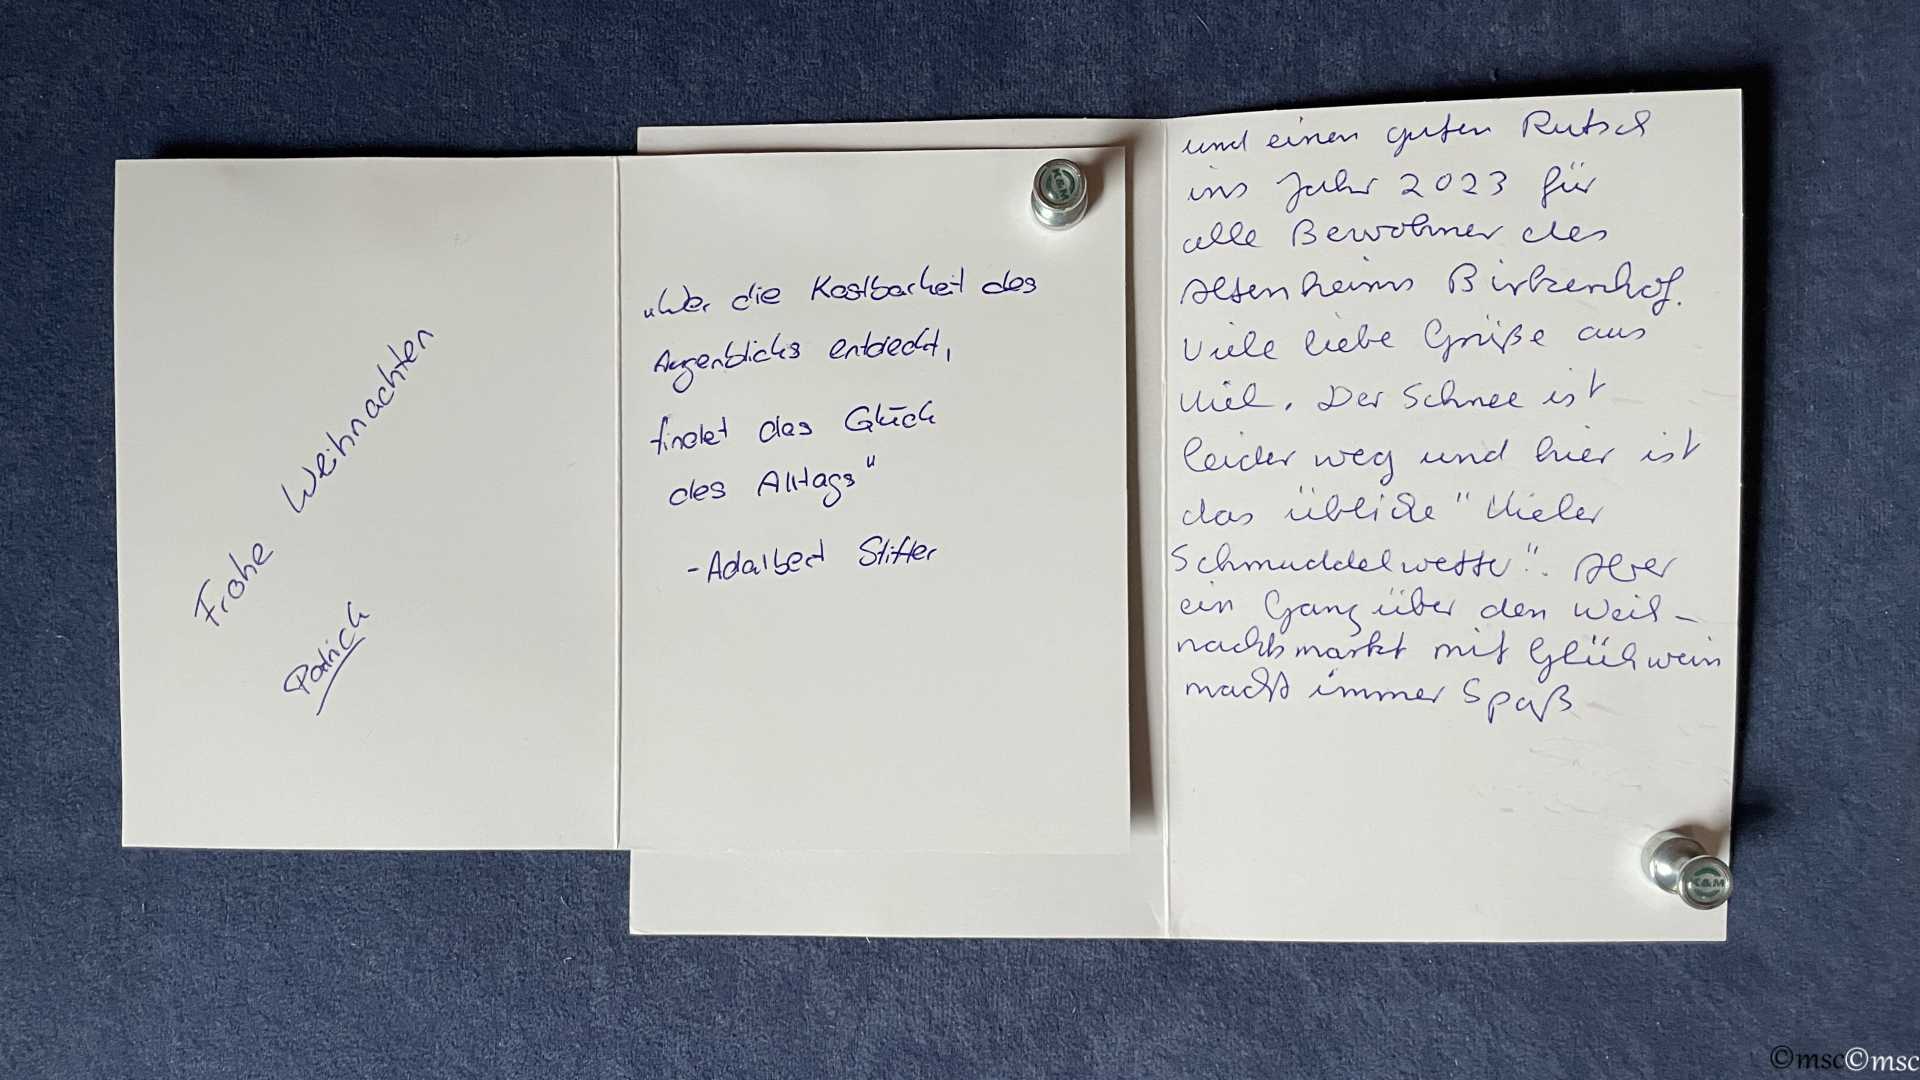 Frohe Weihnachten
Patrick
„Wer die Kostbarkeit des
Augenblicks entdeckt,
findet das Glück
des Alltags"
- Adalbert Stifter
und einen guten Rutsch
ins Jahr 2023 für
alle Bewohner des
Altenheims Birkenhof.
Viele liebe Grüße aus
Kiel. Der Schnee ist
leider weg und hier ist
das übliche "Kieler
Schmuddelwetter". Aber
ein Gang über den Weih-
nachtsmarkt mit Glühwein
macht immer Spaß
K&M
K&M
©msc©msc